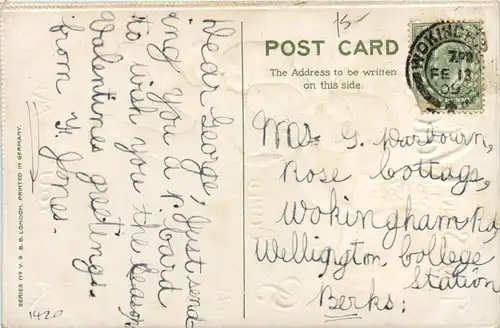 15-
POST CARD
The Address to be written
on this side.
WOKINGHAM
7.PM
FE 13
09
Dear George, Just send
ing you a P. Card
to wish you the Season
Valentine greetings.
from Y. Jones.
Mr G. Darbourn,
Rose Cottage,
Wokingham Rd,
Wellington College
Station
Berks;
SERIES 117 V. 3 B.B. LONDON. PRINTED IN GERMANY.
1420